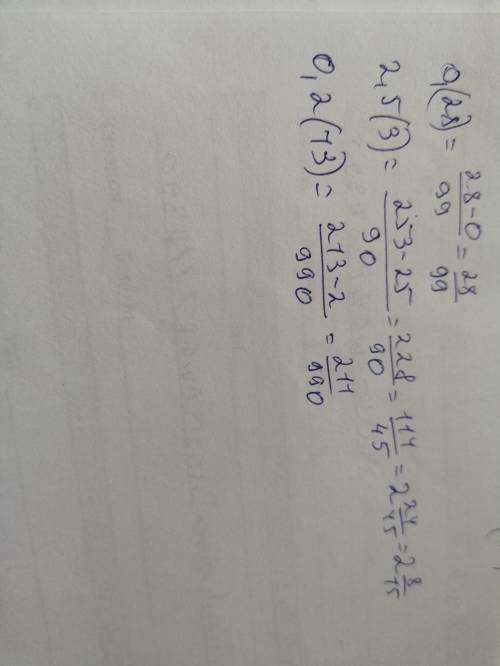 0,(28) = 28-0/99 = 28/99
2,5(3) = 253-25/90 = 228/90 = 114/45 = 2 24/45 = 2 8/15
0,2(13) = 213-2/990 = 211/990